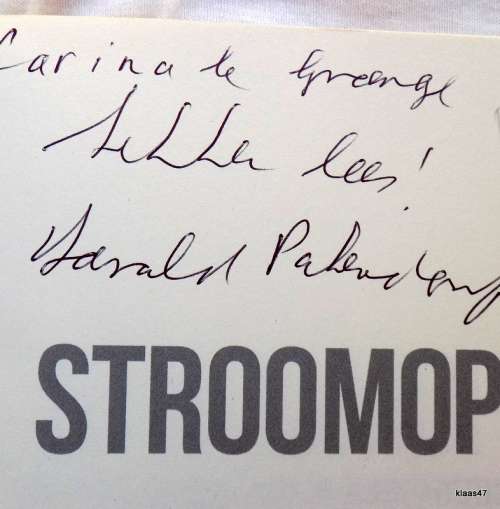 Carina le Grange
Lekker lees!
Harald Pakendorf
STROOMOP
klaas47